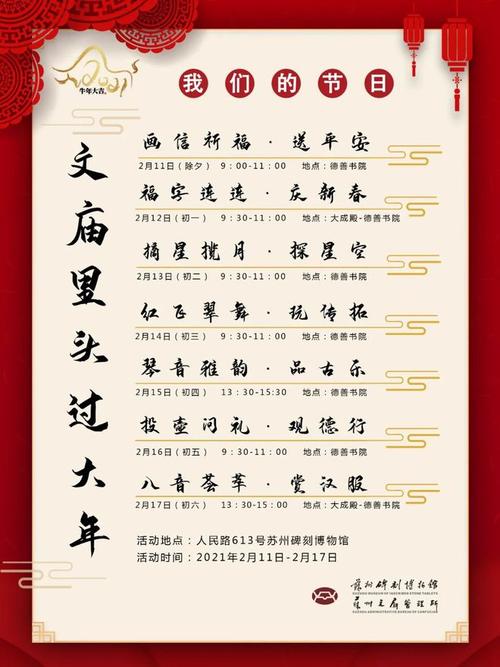 2021
牛年大吉
我们的节日
文庙里头过大年
画信祈福·送平安
2月11日（除夕） 9:00-11:00 地点：德善书院
福字连连·庆新春
2月12日（初一） 9:30-11:00 地点：大成殿-德善书院
摘星揽月·探星空
2月13日（初二） 9:30-11:00 地点：德善书院
红飞翠舞·玩传拓
2月14日（初三） 9:30-11:00 地点：德善书院
琴音雅韵·品古乐
2月15日（初四） 13:30-15:30 地点：德善书院
投壶问礼·观德行
2月16日（初五） 9:30-11:00 地点：德善书院
八音荟萃·赏汉服
2月17日（初六） 13:30-15:00 地点：大成殿-德善书院
活动地点：人民路613号苏州碑刻博物馆
活动时间：2021年2月11日-2月17日
蘇州碑刻博物館
SUZHOU MUSEUM OF INSCRIBED STONE TABLETS
蘇州文廟管理所
SUZHOU ADMINISTRATIVE BUREAU OF CONFUCIAN